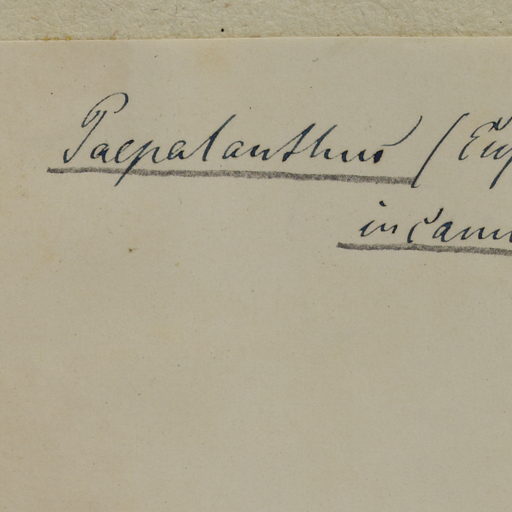 Paepalanthus (Eup
incanu